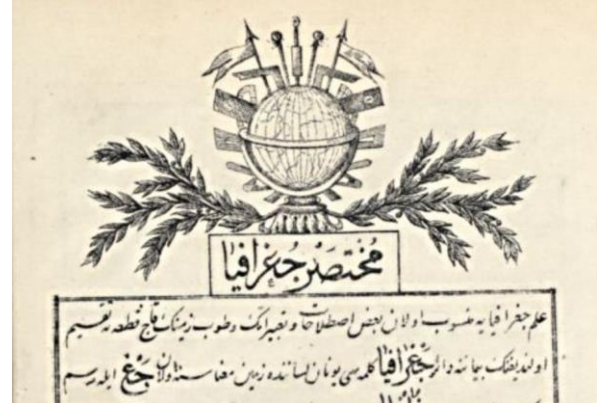 مختصر جغرافيا
علم جغرافيايه منسوب اولان بعض اصطلاحات و تعبيراتك و طوپ زمينك قاچ قطعه يه تقسيم
اولنديغنك بياننه دائر جغرافيا كلمه سى يونان لساننده زمين معناسنه اولان جغ ايله رسم